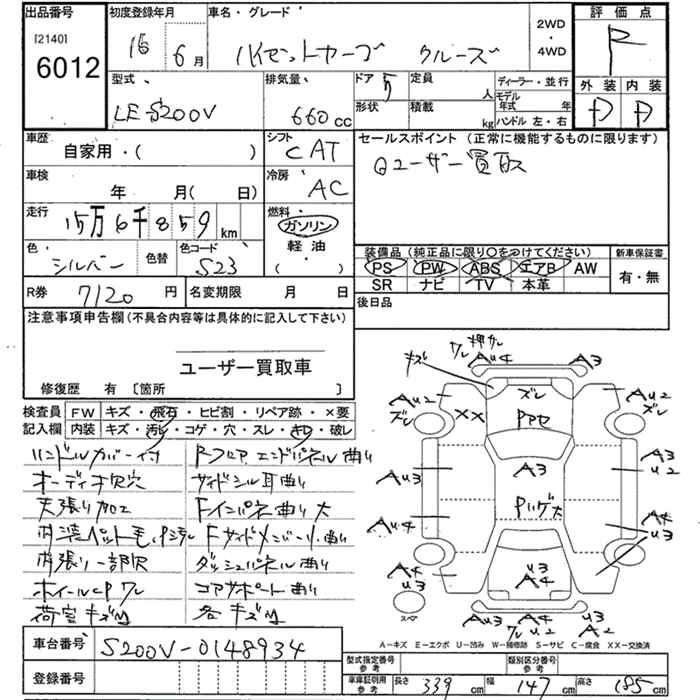 出品番号 初度登録年月 車名・グレード 2WD・4WD 評価点
[2140]
6012
16年 6月 ハイゼットカーゴ クルーズ R
型式 排気量 ドア 5 定員 人 ディーラー・並行 外装 内装
LE-S200V 660cc 形状 積載 kg モデル年式 年 ハンドル 左・右 D D
車歴 シフト セールスポイント (正常に機能するものに限ります)
自家用・( ) CAT
車検 冷房 ①ユーザー買取
年 月( 日) AC
走行 燃料
15万6千859km ガソリン
色 色替 色コード 軽油・( ) 装備品(純正品に限り○をつけてください) 新車保証書
シルバー S23 PS PW ABS エアB AW 有・無
R券 7120円 名変期限 月 日 SR ナビ TV 本革
後日品
注意事項申告欄(不具合内容等は具体的に記入して下さい)
ユーザー買取車
修復歴 有 〔箇所 〕
検査員記入欄 FW キズ・飛石・ヒビ割・リペア跡・×要
内装 キズ・汚レ・コゲ・穴・スレ・キレ・破レ
ハンドルカバー付 Rフロア エンドパネル曲り
オーディオ欠穴 サイドシル耳曲り
天張り加工 Fインパネ曲り大
内装ペット毛 Fサイドメンバー曲り
内張り一部欠 ダッシュパネル曲り
ホイールCPワレ コアサポート曲り
荷室キズ凹 各キズ凹
キズ ワレ 押サレ AU4 A3
AU2 ズレ XX ズレ AU2 ズレ
Pハゼ
AU3 A3 A3 U2
Pハゲ大
AU4 A4 U3
A4 U3 U3 A4
スペア
AU3 A4 U3
ワレ U2 A2
A-キズ E-エクボ U-凹み W-補修跡 S-サビ C-腐食 XX-交換済
車台番号 S200V-0148934
登録番号
型式指定番号参考 類別区分番号参考
車庫証明用参考 長さ 339cm 幅 147cm 高さ 185cm